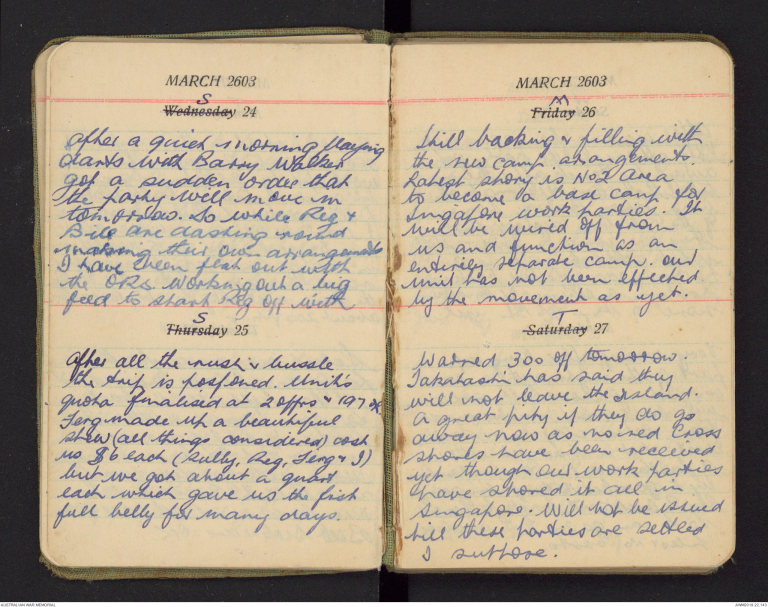 MARCH 2603
S
Wednesday 24
After a quiet morning playing
darts with Barry Walker
got a sudden order that
the party will move in
tomorrow. So while Reg &
Bill are dashing round
making their own arrangements
I have been flat out with
the ORs working out a big
feed to start Reg off with
S
Thursday 25
After all the rush & bussle
the trip is posponed. Unit's
quota finalised at 2 offrs & 197 ORs
Ferg made up a beautiful
stew (all things considered) cost
us $6 each (Sully, Reg, Ferg & I)
but we got about a quart
each which gave us the first
full belly for many days.
MARCH 2603
M
Friday 26
Still backing & filling with
the new camp arrangements.
Latest story is No2 Area
to become a base camp for
Singapore work parties. It
will be wired off from
us and function as an
entirely separate camp. Our
unit has not been effected
by the movement as yet.
T
Saturday 27
Warned 300 off tomorrow.
Takahashi has said they
will not leave the Island.
A great pity if they do go
away now as no red Cross
stores have been received
yet though our work parties
have stored it all in
Singapore. Will not be issued
till these parties are settled
I suppose.
AUSTRALIAN WAR MEMORIAL